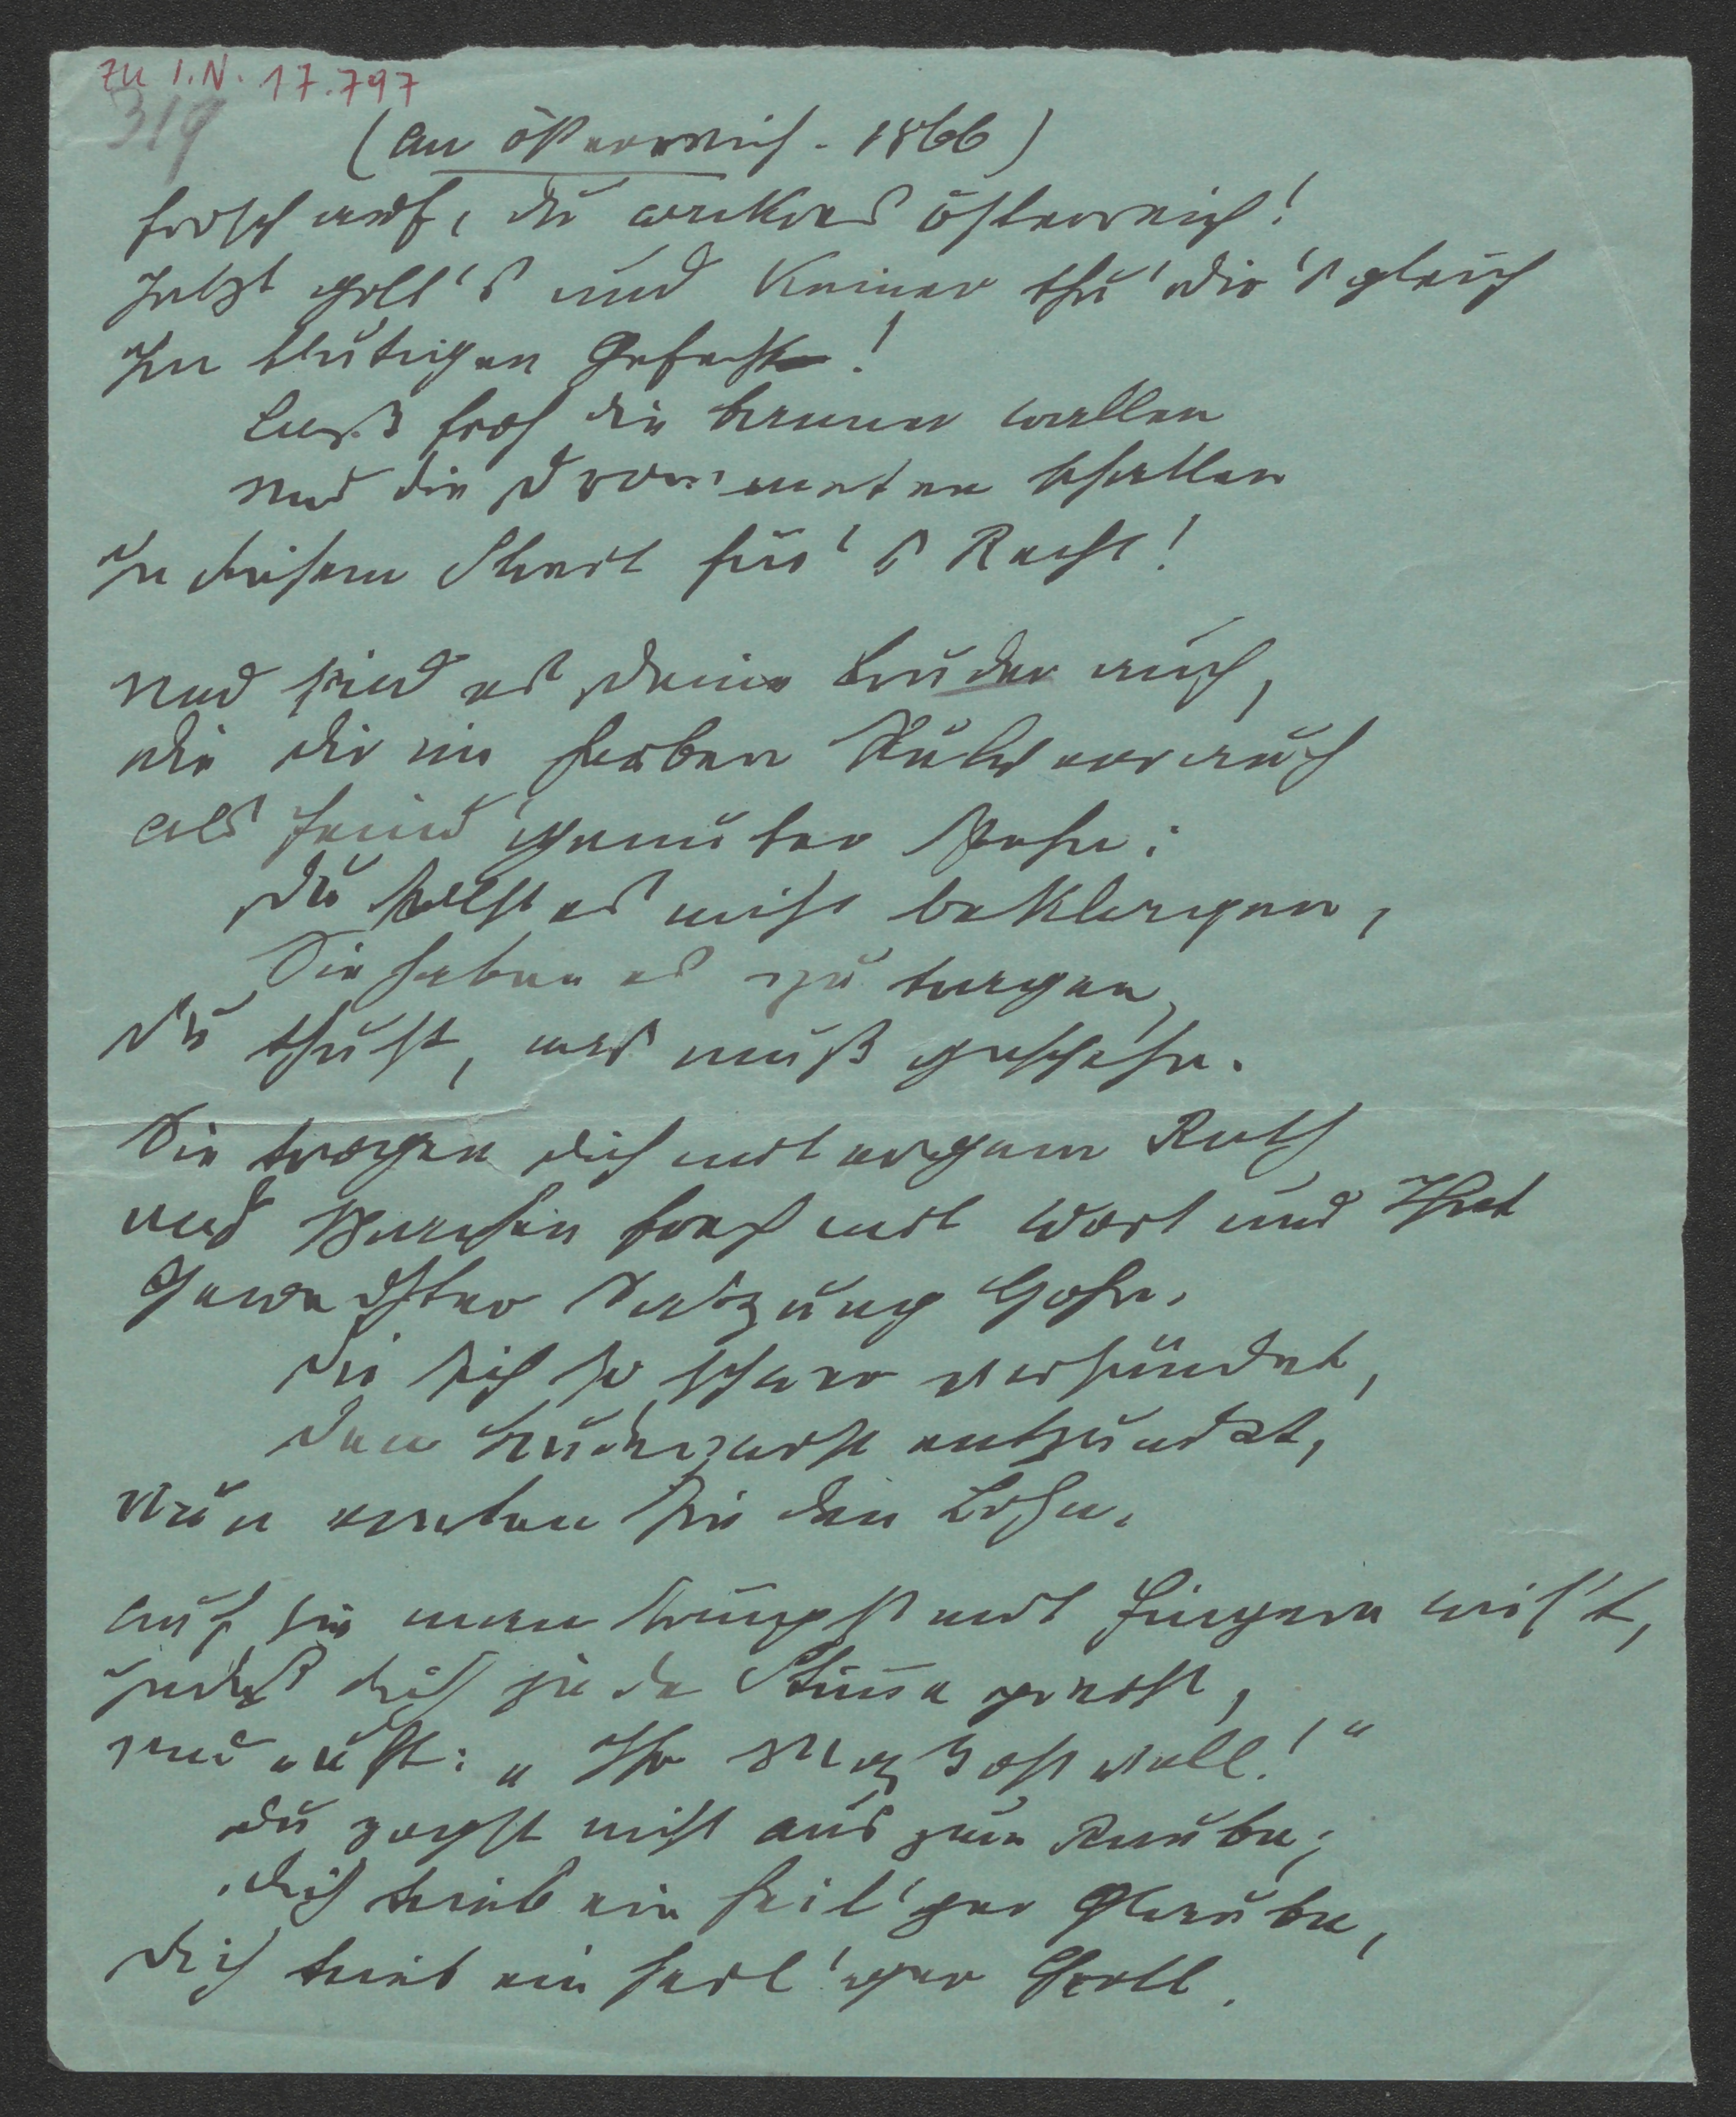 zu I.N. 17.797
319
(An Österreich - 1866)
Frisch auf, du wackres Österreich!
Jetzt gilt's und Keiner thu' dir's gleich
Im blutigen Gefecht!
Laß hoch die Banner wallen
Und die Drommeten schallen
In diesem Streit für's Recht!
Und sind es deine Brüder auch,
die dir im herben Pulverrauch
als Feind genüber stehn:
Du sollst es nicht beklagen,
Sie haben es zu tragen,
Du thust, was muß geschehn.
Sie trogen dich mit argem Rath
und sprachen frech mit Wort und That
Gerechter Satzung Hohn.
Die sich so schwer versündet,
den Bruderzwist entzündet,
Nun ernten sie den Lohn.
Auf sie man trüb mit Fingern weis't,
Indeß dich jede Stimme preist,
und ruft: „Ihr Maß ist voll!"
Du zogst nicht aus zum Raube;
dich trieb ein heil'ger Glaube,
dich trieb ein heil'ger Groll.